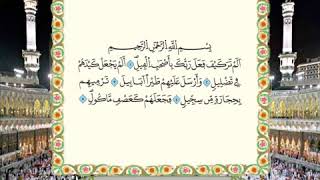 بِسْمِ اللَّهِ الرَّحْمَٰنِ الرَّحِيمِ
أَلَمْ تَرَ كَيْفَ فَعَلَ رَبُّكَ بِأَصْحَابِ الْفِيلِ ۝ أَلَمْ يَجْعَلْ كَيْدَهُمْ
فِي تَضْلِيلٍ ۝ وَأَرْسَلَ عَلَيْهِمْ طَيْرًا أَبَابِيلَ ۝ تَرْمِيهِم
بِحِجَارَةٍ مِّن سِجِّيلٍ ۝ فَجَعَلَهُمْ كَعَصْفٍ مَّأْكُولٍ ۝